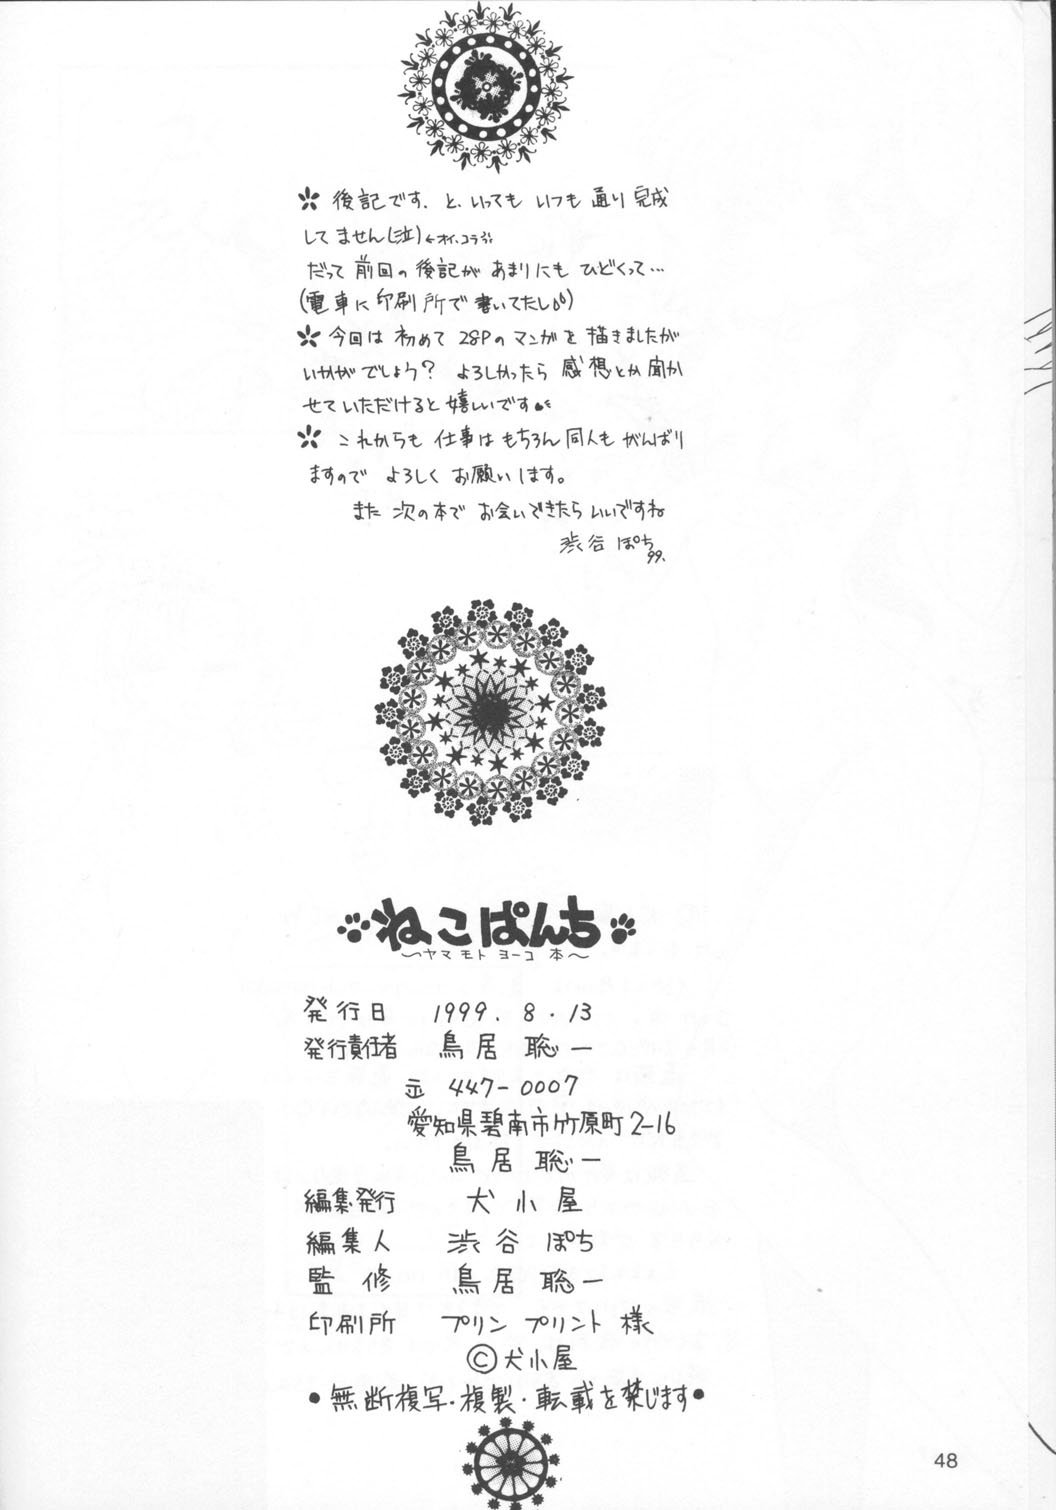 後記です、と、いっても いつも 通り 完成
してません(泣)←オイ、コラ
だって 前回の 後記が あまりにも ひどくって…
(電車に 印刷所で 書いてたし)
今回は 初めて 28Pの マンガを 描きましたが
いかがでしょう? よろしかったら 感想とか聞か
せていただけると嬉しいです
これからも 仕事は もちろん 同人も がんばり
ますので よろしく お願いします。
また 次の本で お会いできたら いいですね
渋谷 ぽち
99.
ねこぱんち
〜ヤマモト ヨーコ 本〜
発行日 1999. 8. 13
発行責任者 鳥居 聡一
〒 447-0007
愛知県碧南市竹原町2-16
鳥居 聡一
編集発行 犬小屋
編集人 渋谷 ぽち
監修 鳥居 聡一
印刷所 プリン プリント 様
©犬小屋
•無断複写・複製・転載を禁じます•
48